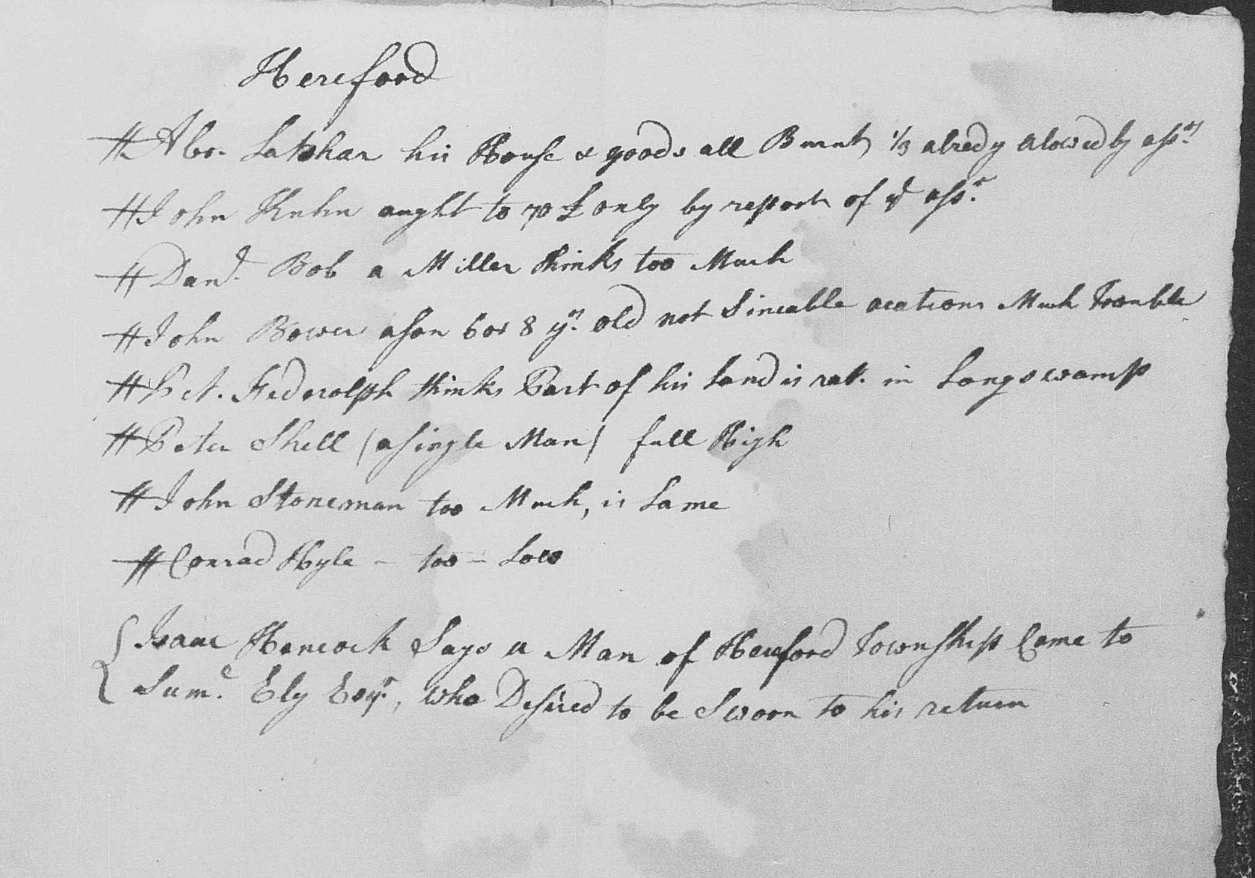 Hereford
# Abr. Latshar his House & goods all Burnt 1/3 alredy alowed by assrs
# John Kuhn aught to 70 £ only by report of ye assr.
# Danl. Bob a Miller thinks too Much
# John Bower a son 6 or 8 yrs. old not Sincable acations Much Trouble
# Pet. Federolph thinks Part of his Land is rat. in Longswamp
# Peter Shell (a single Man) full High
# John Stoneman too Much, is Lame
# Conrad Hyle - too - Low
{ Isaac Hancock Says a Man of Hereford Township Came to
Saml. Ely Esqr, who Desired to be Sworn to his return